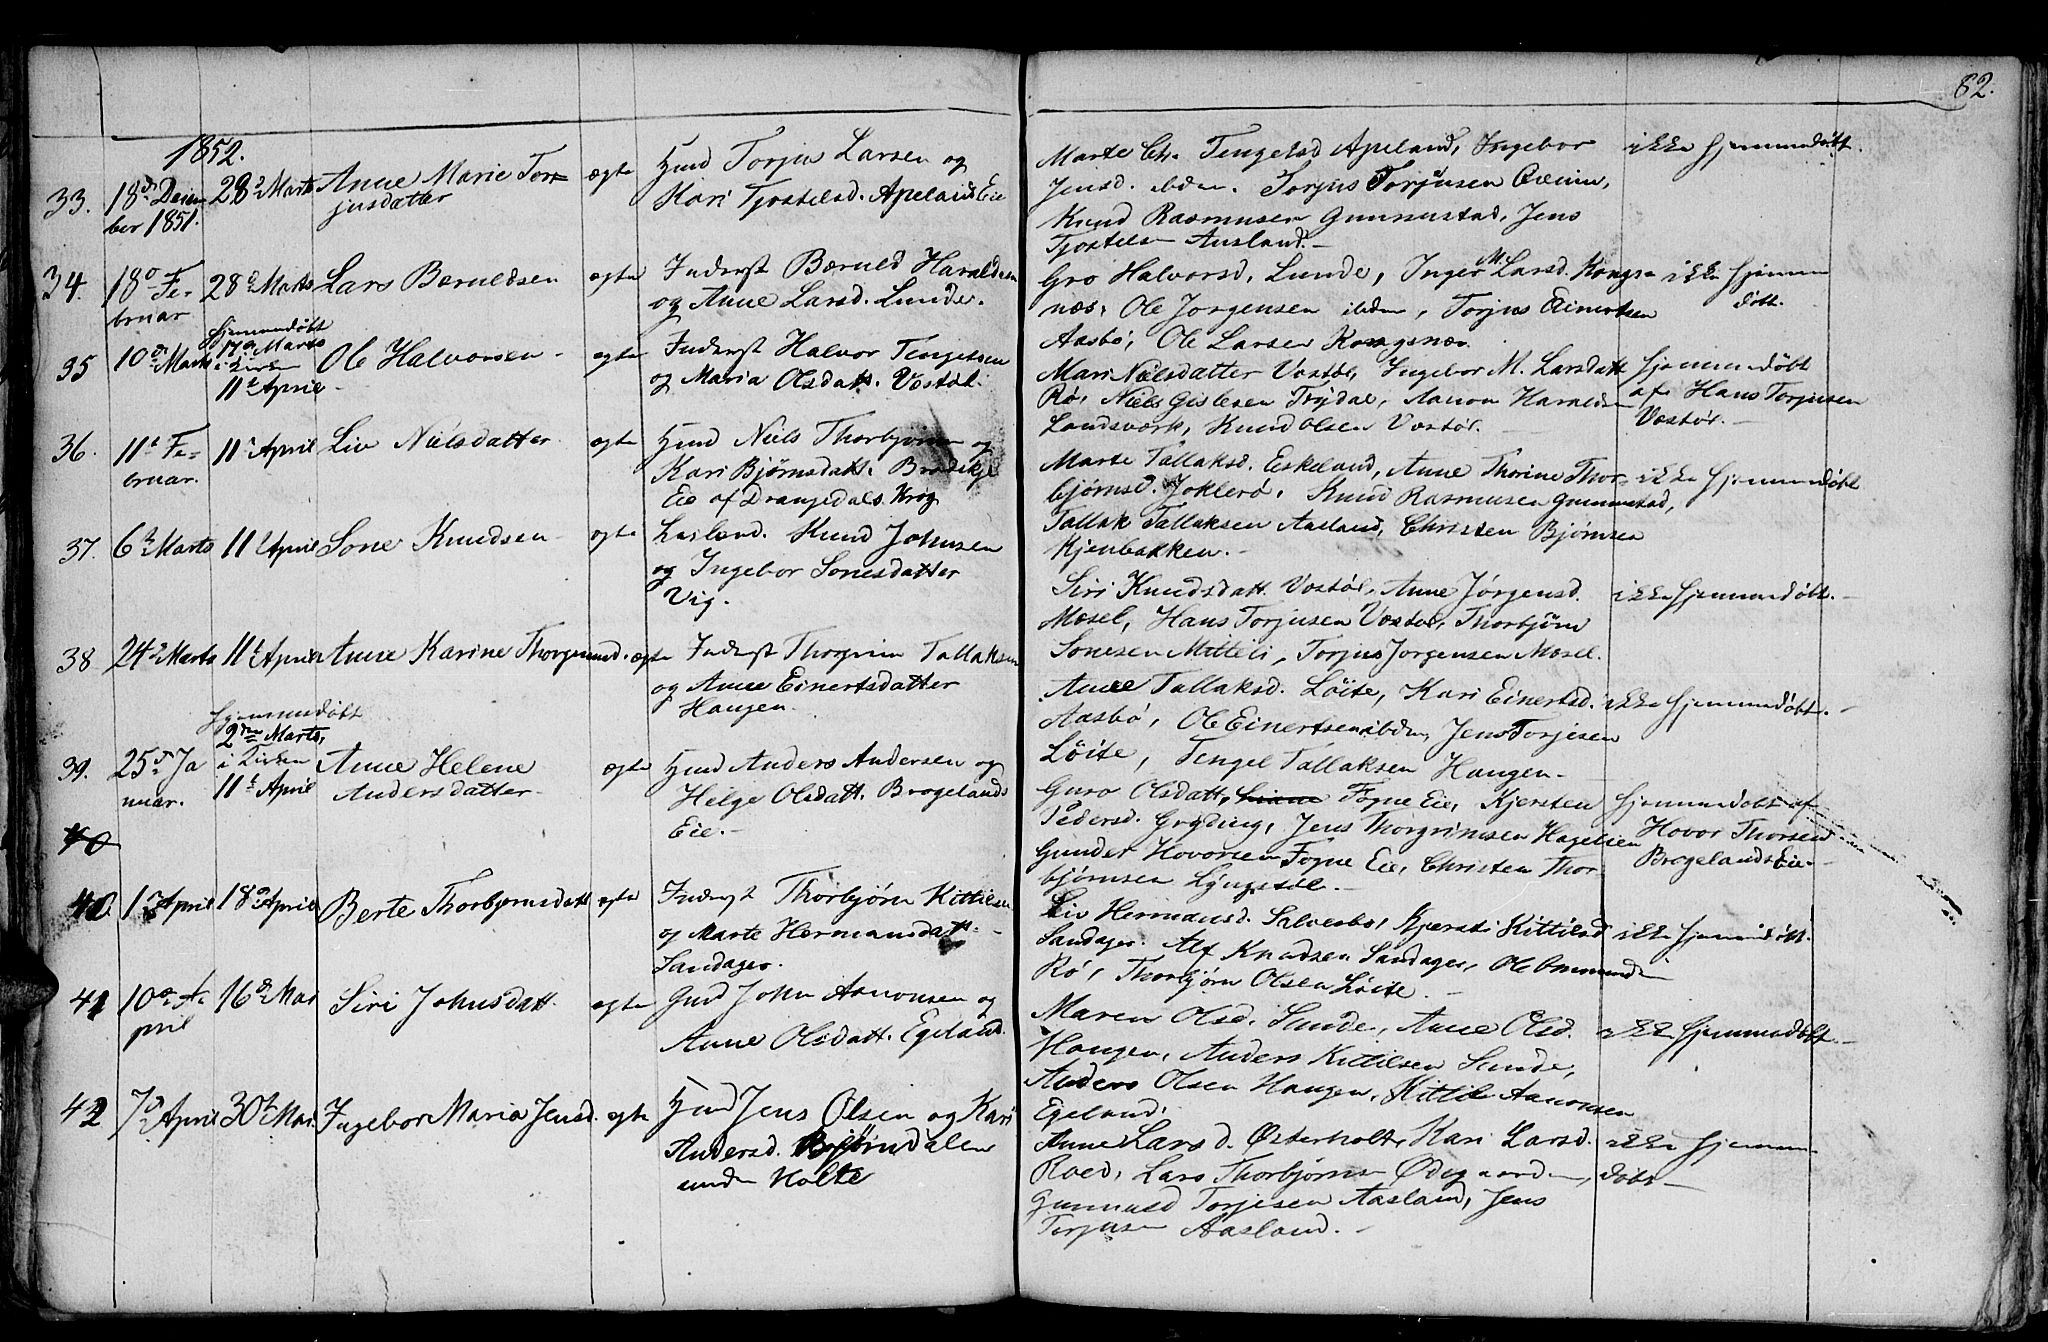 82.
1852.
33. 18de Decem 28de Marts Anne Marie Tor= ægte Huusmd Torjus Larsen og
ber 1851. jusdatter Kari Tjostelsd. Apeland Eie
Marte Chr. Tengelsd Apeland, Ingebor ikke hjemmedøbt.
Jensd. ibdm. Torjus Torjusen
Knud Rasmusen Gunnustad, Jens
Tjostelsen Aasland.-
34. 18de Fe- 28de Marts Lars Beruldsen ægte Inderst Beruld Haraldsen
bruar og Anne Larsd. Lunde.
Gro Halvorsd. Lunde, Inger M. Larsd. Kongs= ikke hjemme
næs, Ole Jorgensen ibdm, Torjus Einertsen døbt.
Aasbø, Ole Larsen Kongsnæs
35 10de Marts hjemmedøbt 17de Marts i Kirken 11te April - Ole Halvorsen - ægte Inderst Halvor Tengelsen
og Maria Olsdatt. Vostøl.
Mari Nielsdatter Vostøl, Ingebor M. Larsdatt hjemmedøbt
Rø, Niels Gislesen Trydal, Aanon Haraldsen af Hans Torjusen
Landsverk, Knud Olsen Vostøl. - Vostøl. -
36. 11te Fe= 11te April Liv Nielsdatter ægte Huusmd Niels Thorbjørnsen og
bruar. Kari Bjørnsdatt.
Eie af Drangedals Krog
Marte Tallaksd. Eskeland, Anne Thorine Thor ikke hjemmedøbt
bjørnsd. Joklerø, Knud Rasmusen Gunnustad,
Tallak Tallaksen Aasland, Christen Bjørnsen
Kjenbakken. -
37. 6te Marts 11te April Sone Knudsen - ægte Leilend. Knud Johnsen
og Ingebor Sonesdatter
Vig.
Siri Knudsdatt. Vostøl, Anne Jørgensd. ikke hjemmedøbt. -
Mosel, Hans Torjusen Vostøl, Thorbjørn
Sonesen Mitteli, Torjus Jorgensen Mosel.
38 24de Marts 11te April Anne Karine Thorgrimsd. ægte Inderst Thorgrim Tallaksen
og Anne Einertsdatter
Haugen.
Anne Tallaksd. Løite, Kari Einertsd. ikke hjemmedøbt. -
Aasbø, Ole Einertsen ibdm, Jens Torjesen
Løite, Tengel Tallaksen Haugen -
39. 25de Ja hjemmedøbt 2den Marts, i Kirken 11te April Anne Helene ægte Huusmd Anders Andersen og
nuar. Andersdatter - Helge Olsdatt. Brogelands
Eie. -
Guro Olsdatt, Fogne Eie, Kjersten hjemmedøbt af
Pedersd. Gryting, Jens Thorgrimsen Hagelien Hovor Thorsen
Gunder Hovorsen Fogne Eie, Christen Thor Brogelands Eie -
bjørnsen Lyngstøl. -
40
40. 1ste April 18de April Berte Thorbjørnsdatt ægte Inderst Thorbjørn Kittilsen
og Marte Hermansdatt. -
Sandager.
Liv Hermansd. Salvesbo, Kjersti Kittilsd ikke hjemmedøbt.
Sandager. Alf Knudsen Sandager, Ole Ommundsen
Rø, Thorbjørn Olsen Løite. -
41 10de A= 16de Mai Siri Johnsdatt. ægte Gmd John Aanonsen og
pril Anne Olsdatt. Egeland.
Maren Olsd. Lunde, Anne Olsd. ikke hjemmedøbt. -
Haugen, Anders Kittilsen Lunde,
Anders Olsen Haugen, Kittil Aanonsen
Egeland.
42 7de April 30te Mai Ingebor Maria Jensd. ægte Huusmd Jens Olsen og Kari
Andersd. Bjørndalen
under Holte
Anne Larsd. Østerholt, Kari Larsd. ikke hjemme-
Roed, Lars Thorbjørnsen Ødegaarden, døbt -
Gunnusd Torjesen Aasland, Jens
Torjusen Aasland. -